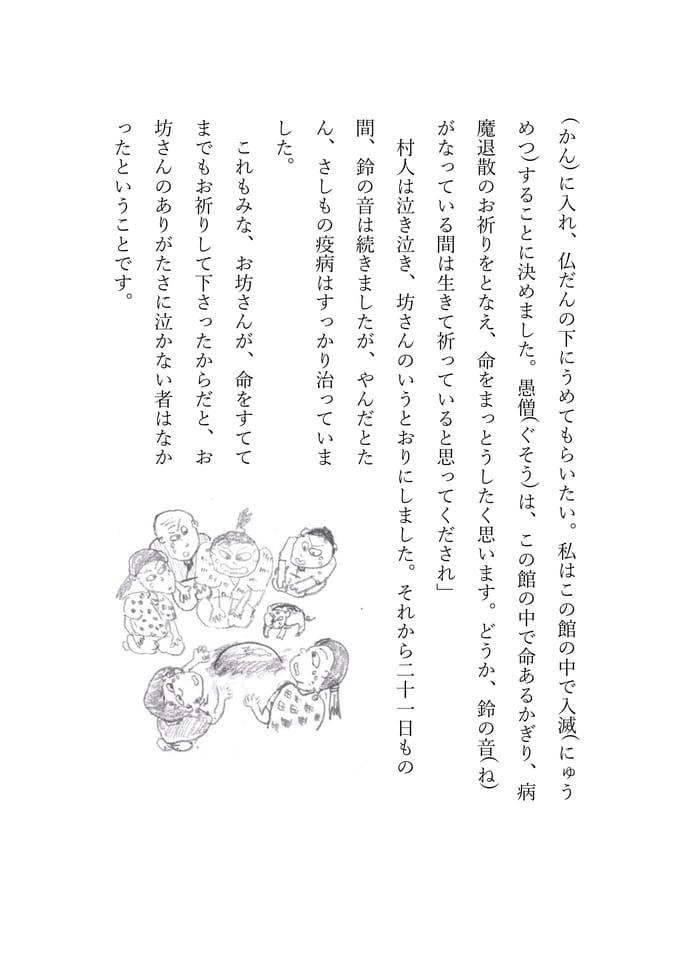 (かん)に入れ、仏だんの下にうめてもらいたい。私はこの館の中で入滅(にゅう
めつ)することに決めました。愚僧(ぐそう)は、この館の中で命あるかぎり、病
魔退散のお祈りをとなえ、命をまっとうしたく思います。どうか、鈴の音(ね)
がなっている間は生きて祈っていると思ってくだされ」
村人は泣き泣き、坊さんのいうとおりにしました。それから二十一日もの
間、鈴の音は続きましたが、やんだとた
ん、さしもの疫病はすっかり治っていま
した。
これもみな、お坊さんが、命をすてて
までもお祈りして下さったからだと、お
坊さんのありがたさに泣かない者はなか
ったということです。